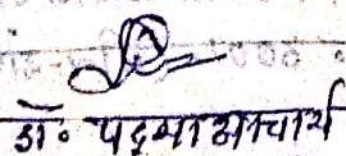 डॉ० पद्मा आचार्य